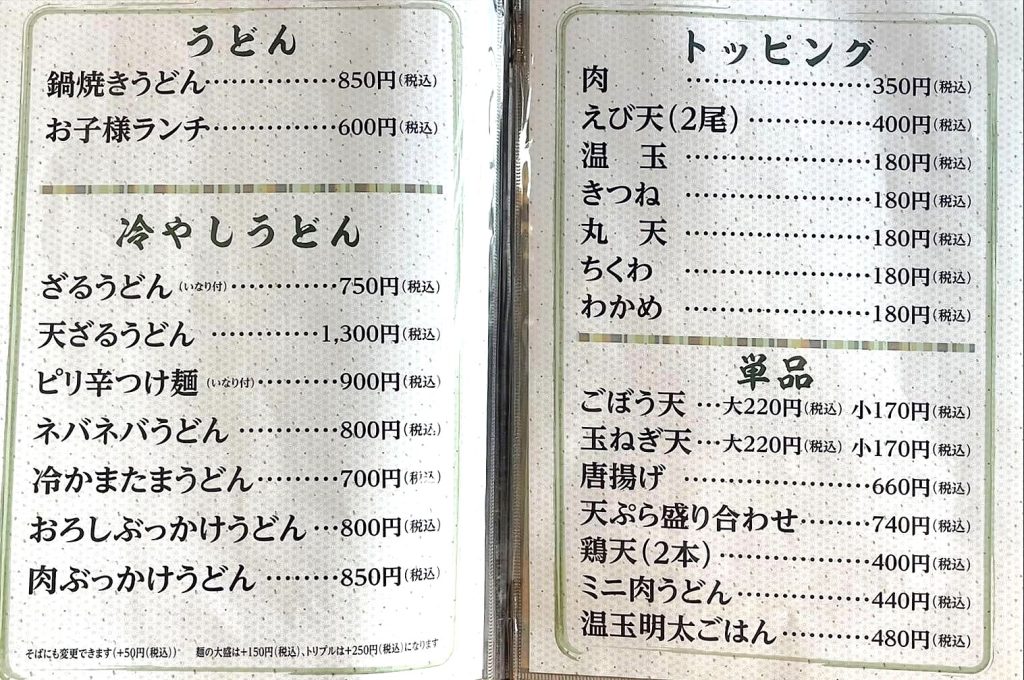 うどん
鍋焼きうどん……………850円(税込)
お子様ランチ……………600円(税込)
冷やしうどん
ざるうどん(いなり付)…………750円(税込)
天ざるうどん…………1,300円(税込)
ピリ辛つけ麺(いなり付)………900円(税込)
ネバネバうどん…………800円(税込)
冷かまたまうどん………700円(税込)
おろしぶっかけうどん…800円(税込)
肉ぶっかけうどん………850円(税込)
そばにも変更できます(+50円(税込)) 麺の大盛は+150円(税込)、トリプルは+250円(税込)になります
トッピング
肉…………………350円(税込)
えび天(2尾)…………400円(税込)
温 玉…………………180円(税込)
きつね…………………180円(税込)
丸 天…………………180円(税込)
ちくわ…………………180円(税込)
わかめ…………………180円(税込)
単品
ごぼう天…大220円(税込) 小170円(税込)
玉ねぎ天…大220円(税込) 小170円(税込)
唐揚げ…………………660円(税込)
天ぷら盛り合わせ………740円(税込)
鶏天(2本)……………400円(税込)
ミニ肉うどん……………440円(税込)
温玉明太ごはん…………480円(税込)